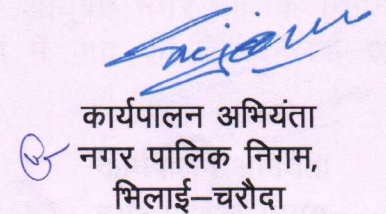 कार्यपालन अभियंता
नगर पालिक निगम,
भिलाई–चरौदा